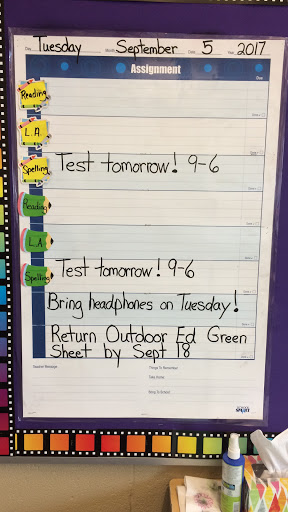 Day Tuesday Month September Date 5 Year 2017
Assignment
Due
Reading
L.A
Spelling Test tomorrow! 9-6
Reading
L.A
Spelling Test tomorrow! 9-6
Bring headphones on Tuesday!
Return Outdoor Ed Green
Sheet by Sept 18
Things To Remember:
Take Home:
Bring To School: